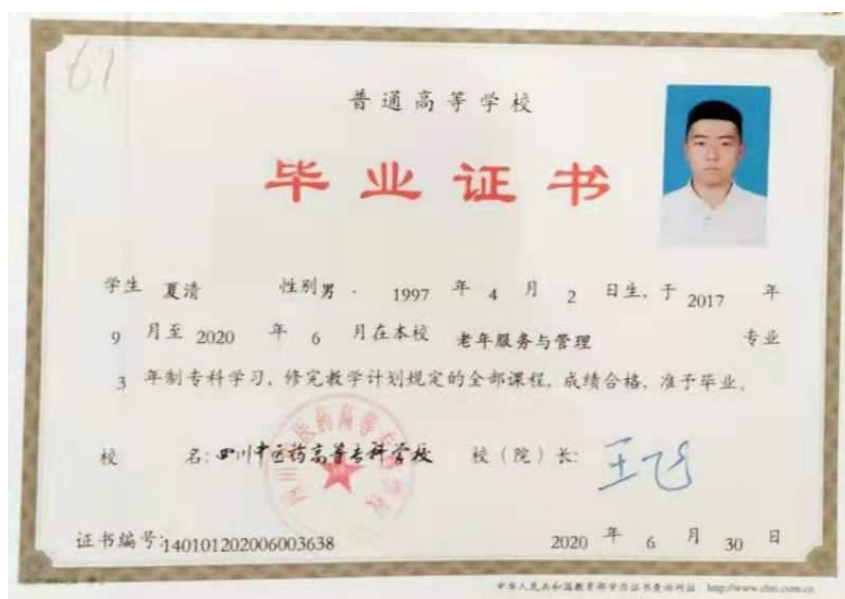 67
普通高等学校
毕业证书
学生 夏清 性别 男 · 1997 年 4 月 2 日生, 于 2017 年
9 月至 2020 年 6 月在本校 老年服务与管理 专业
3 年制专科学习, 修完教学计划规定的全部课程, 成绩合格, 准予毕业。
校 名: 四川中医药高等专科学校 校（院）长: 王飞
证书编号: 140101202006003638 2020 年 6 月 30 日
中华人民共和国教育部学历证书查询网址: http://www.chsi.com.cn